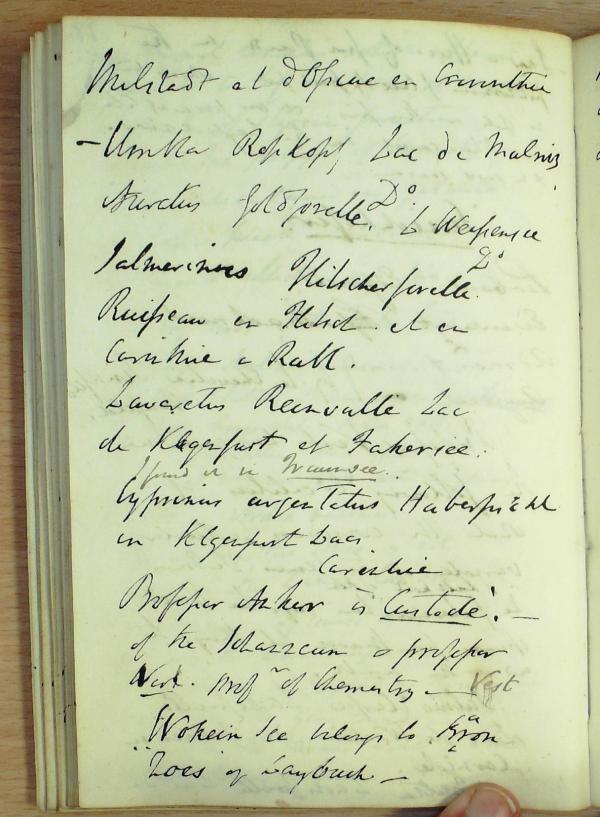 Milstadt et d'Ossiac en Carinthie
- Umbla Rosskopf, Lac de Malniz
Auratus Goldforelle, Do. & Weissensee
Salmarinus Hitscherforelle. Do
Ruisseau en Hitsch. et en
Carinthie a Rabl.
Lavaretus Reinvalle Lac
de Klgenfurt et Fakersee.
I found it in Traunsee.
Cyprinus argentatus
in Klgenfurt Lacs
Carinthie
Professor Anker is Custode. -
of the Johanneum & professor
Vest. Profr of Chemistry - Vest
Wokein See belongs to Baron
Zoes of Laybach -